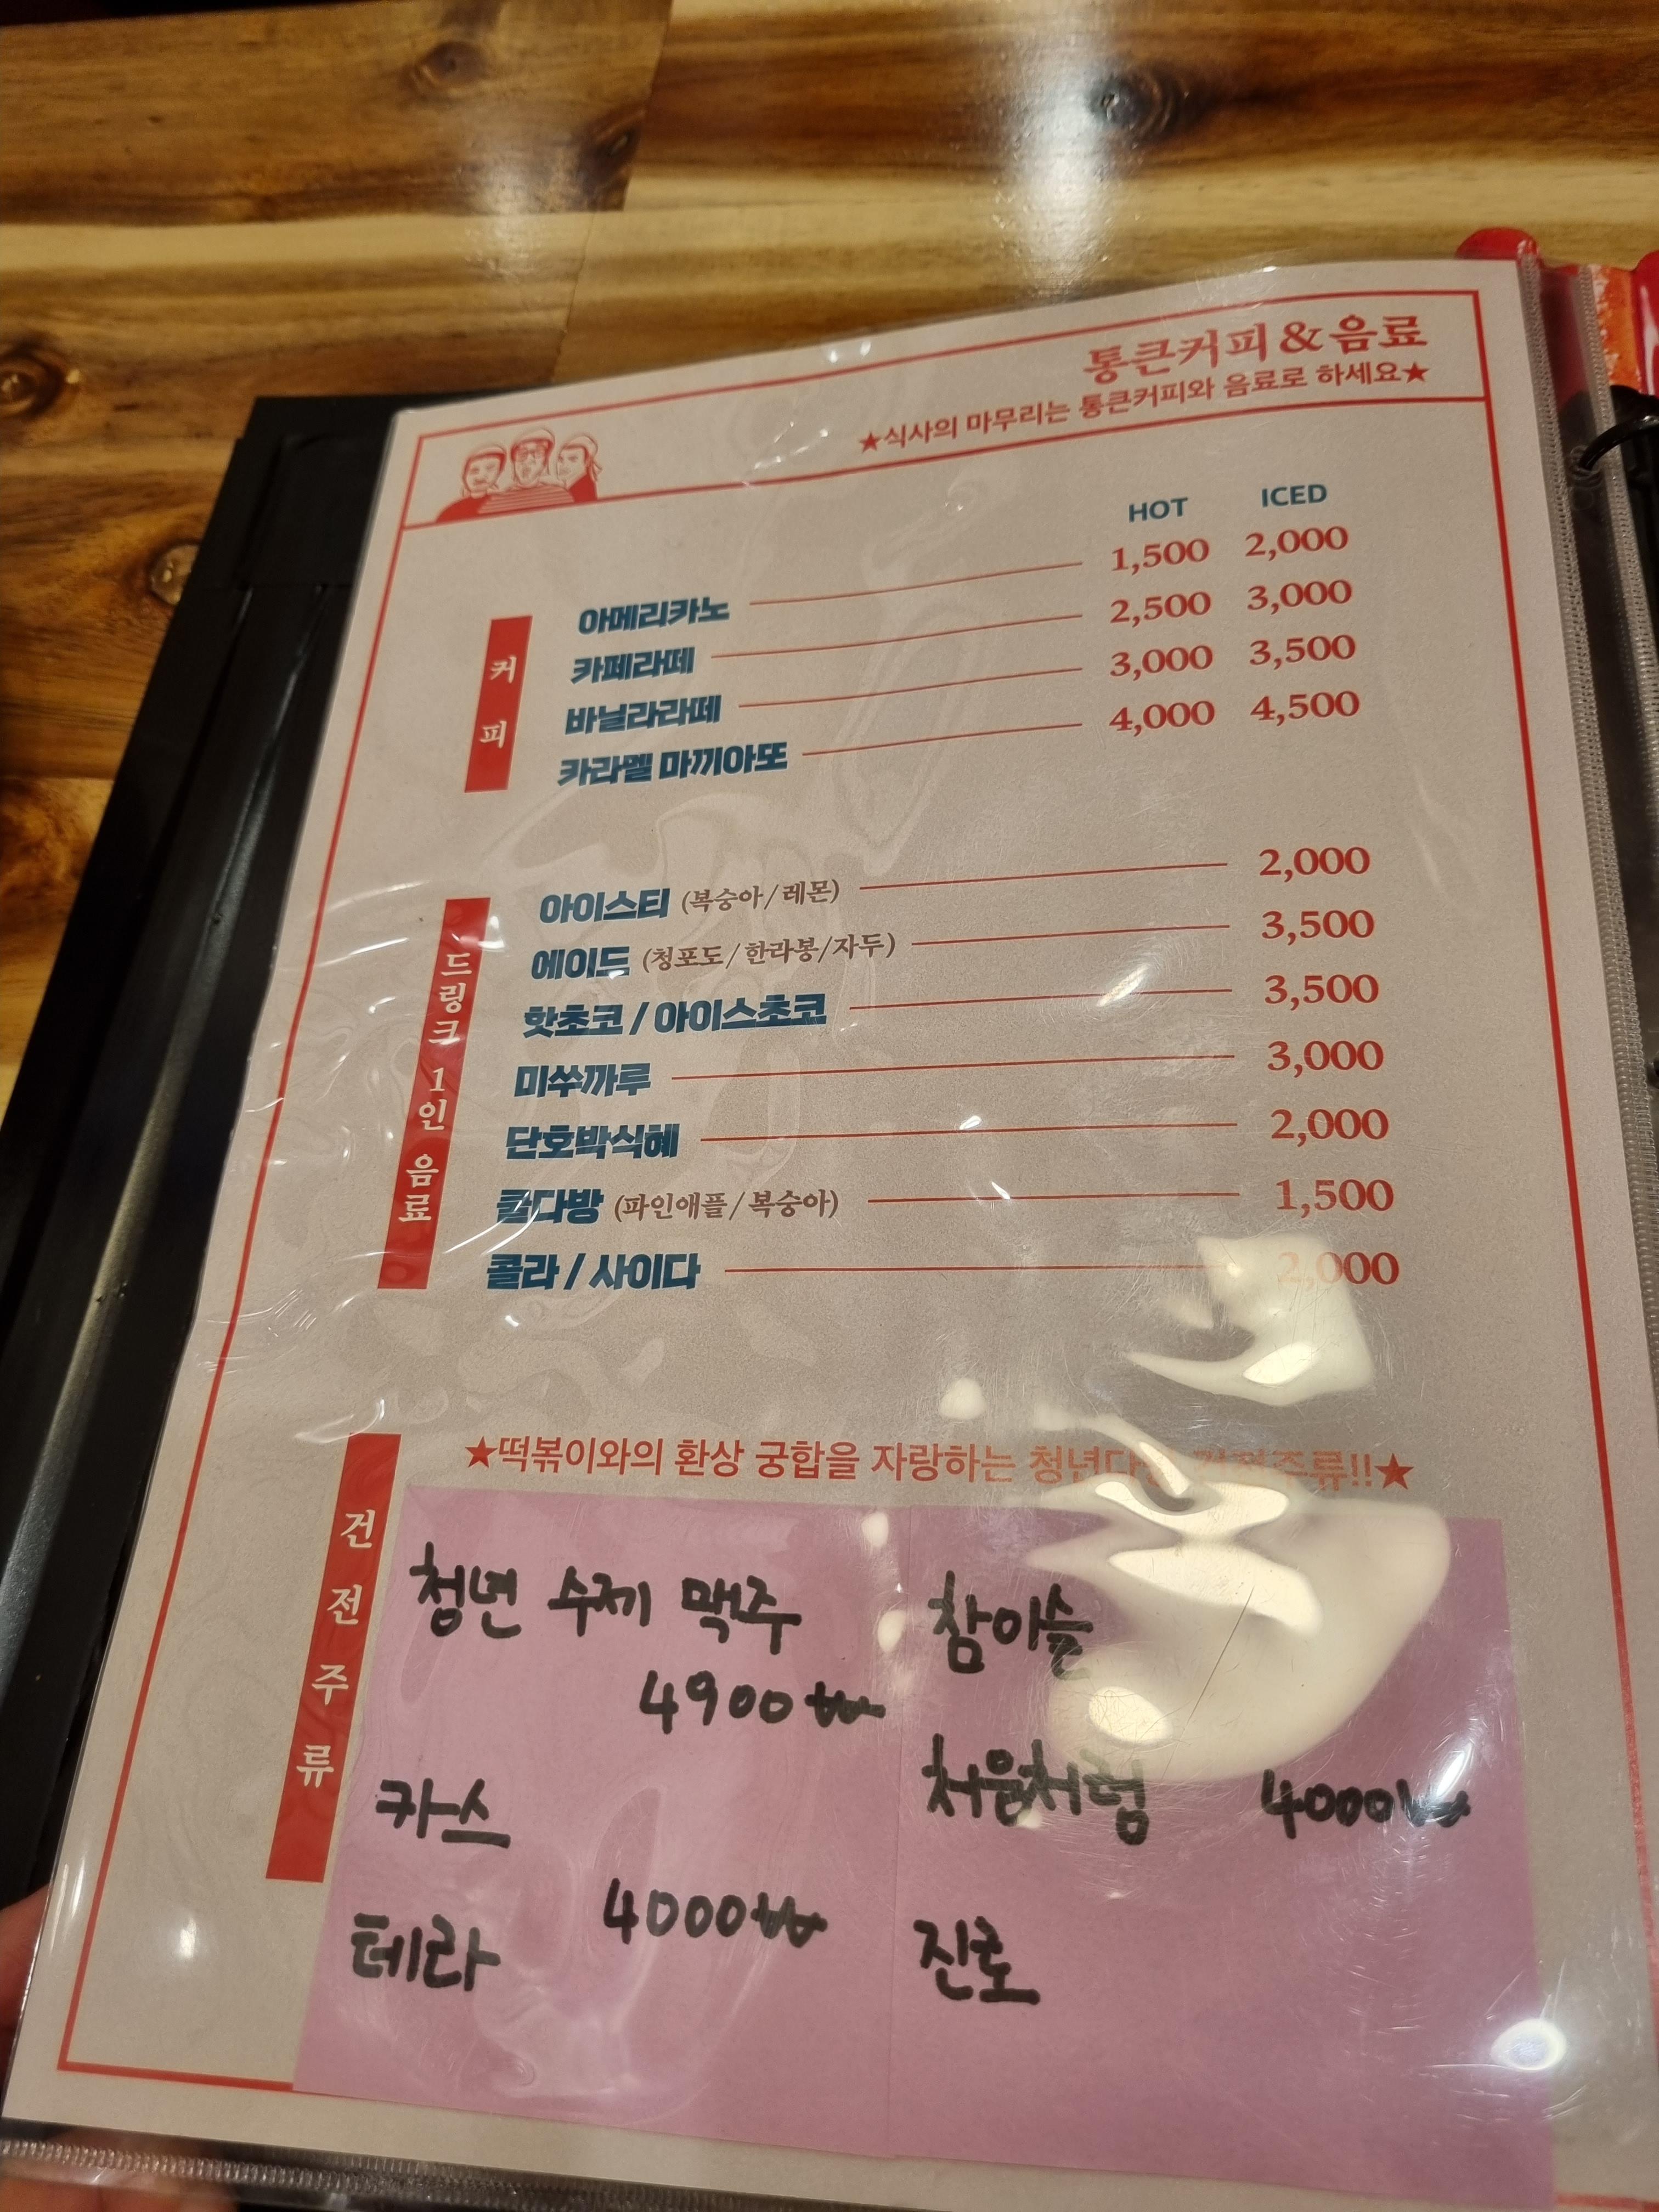 통큰커피&음료
★식사의 마무리는 통큰커피와 음료로 하세요★
HOT ICED
커피
아메리카노 1,500 2,000
카페라떼 2,500 3,000
바닐라라떼 3,000 3,500
카라멜 마끼아또 4,000 4,500
드링크 1인 음료
아이스티 (복숭아/레몬) 2,000
에이드 (청포도/한라봉/자두) 3,500
핫초코 / 아이스초코 3,500
미쑤까루 3,000
단호박식혜 2,000
쿨다방 (파인애플/복숭아) 1,500
콜라 / 사이다 2,000
건전주류
★떡볶이와의 환상 궁합을 자랑하는 청년다방 건전주류!!★
청년 수제 맥주
4900₩
카스
4000₩
테라
참이슬
처음처럼 4000₩
진로